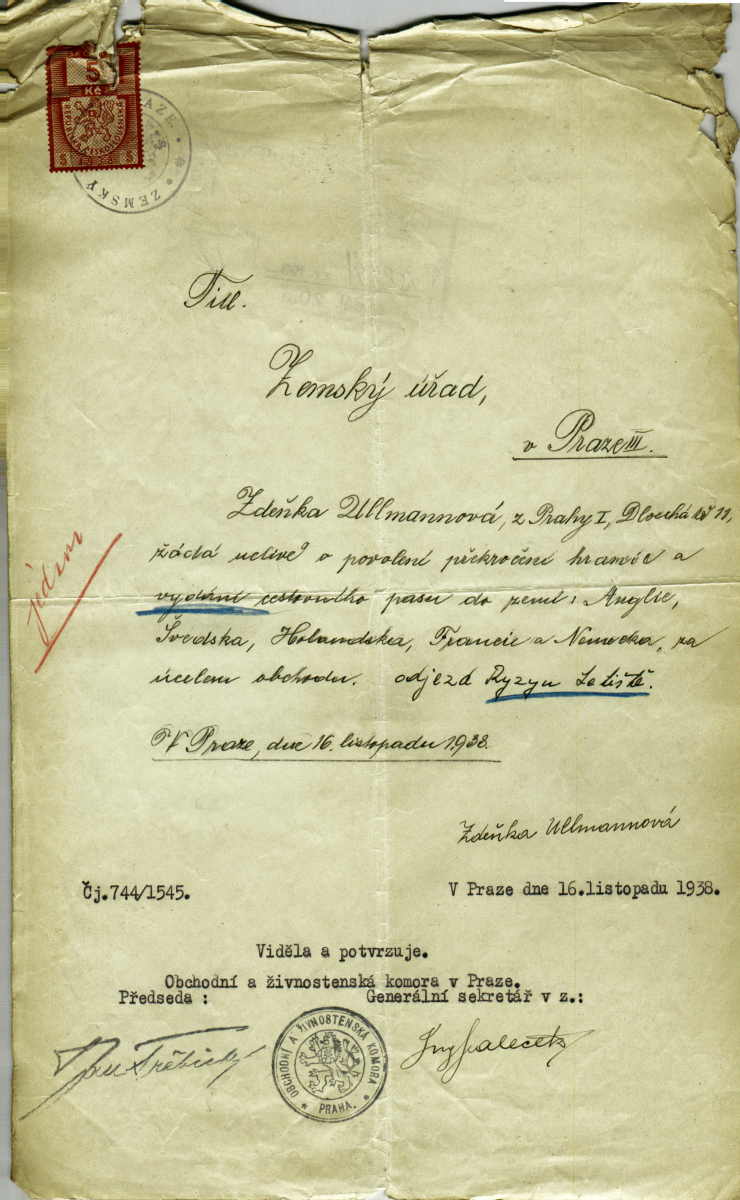 5
Kč
REPUBLIKA ČESKOSLOVENSKÁ
ZEMSKÝ
Titl.
Zemský úřad,
v Praze III.
Zdeňka Ullmannová, z Prahy I, Dlouhá tř 11,
žádá uctivě o povolení překročení hranic a
vydání cestovního pasu do zemí: Anglie,
jeden
Švedska, Holandska, Francie a Německa, za
účelem obchodu. odjezd Ryzyn Letiště.
V Praze, dne 16. listopadu 1938.
Zdeňka Ullmannová
Čj.744/1545.
V Praze dne 16.listopadu 1938.
Viděla a potvrzuje.
Obchodní a živnostenská komora v Praze.
Předseda :
Generální sekretář v z.:
OBCHODNÍ A ŽIVNOSTENSKÁ KOMORA
PRAHA.